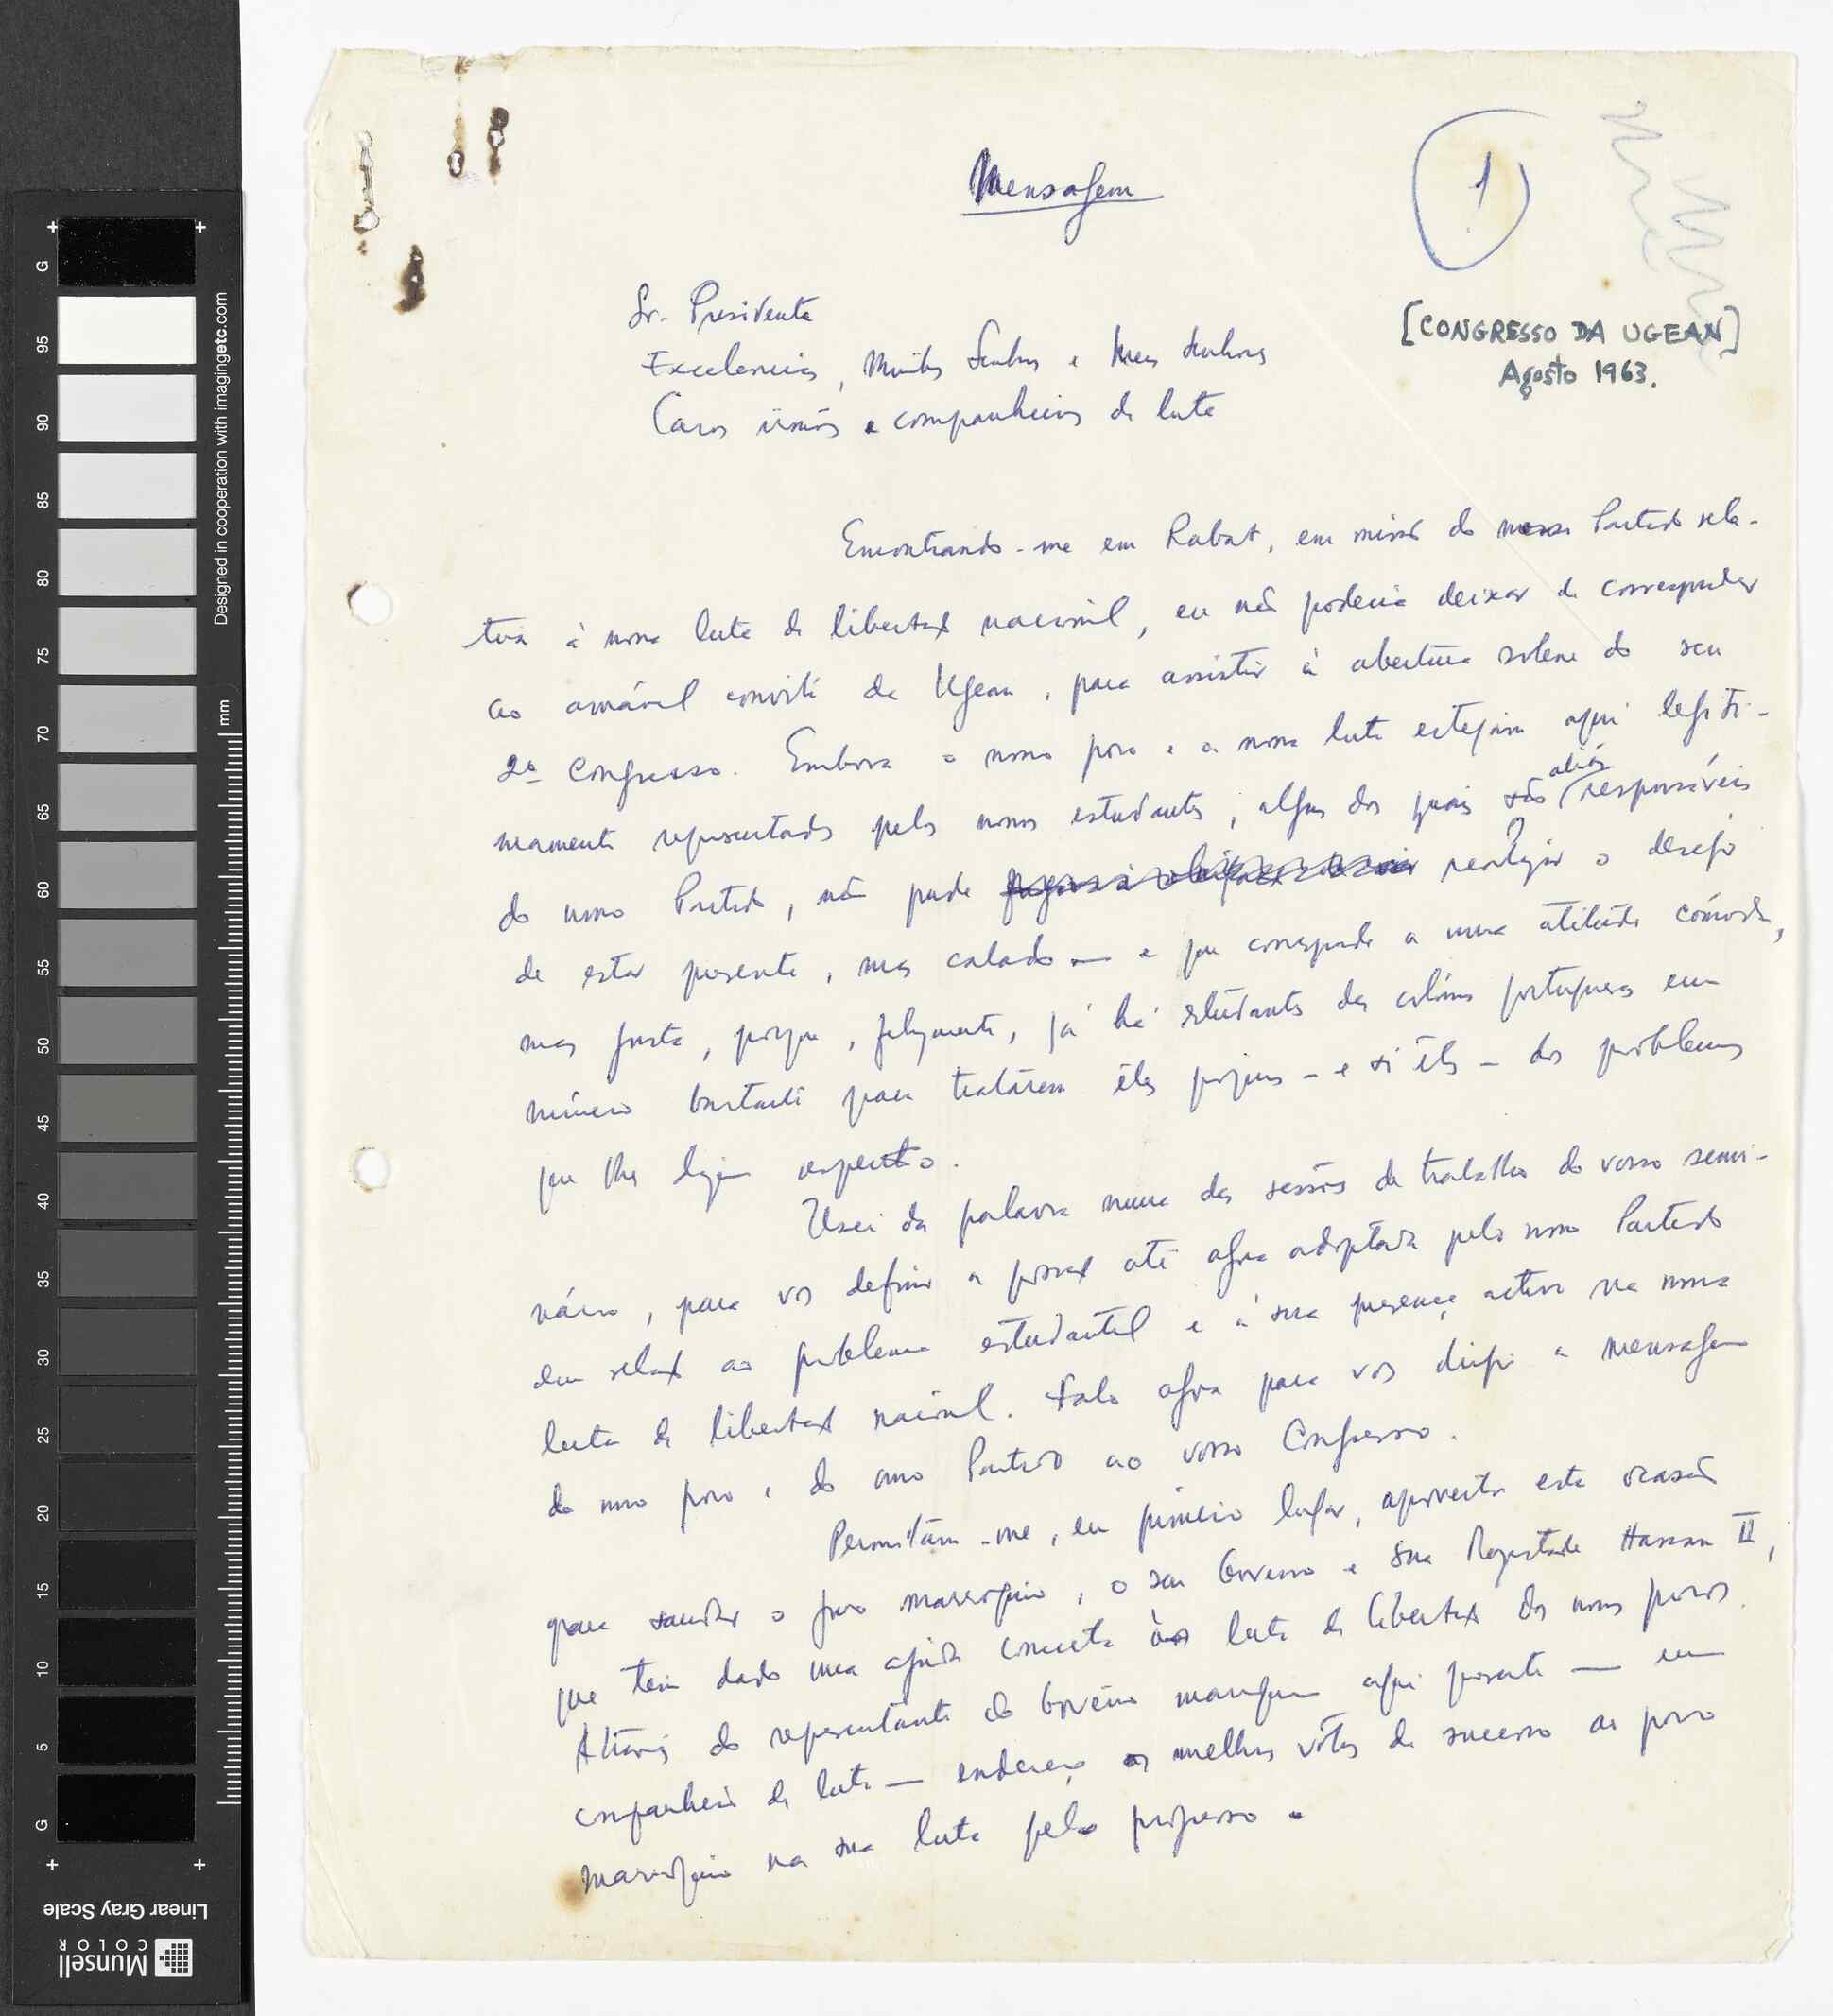 Mensagem
1
[CONGRESSO DA UGEAN]
Agosto 1963.
Sr. Presidente
Excelencias, Minhas Senhoras e Meus Senhores
Caros irmãos e companheiros de luta
Encontrando-me em Rabat, em missão do nosso Partido rela-
tiva à nossa luta de libertação nacional, eu não poderia deixar de corresponder
ao amável convite da Ugean, para assistir à abertura solene do seu
2º Congresso. Embora o nosso povo e a nossa luta estejam aqui legiti-
mamente representados pelos nossos estudantes, alguns dos quais são aliás responsáveis
do nosso Partido, não pude realizar o desejo
de estar presente, mas calado — o que corresponde a uma atitude cómoda,
mas justa, porque, felizmente, já há estudantes das colónias portuguesas em
número bastante para tratarem êles próprios - e só êles - dos problemas
que lhes dizem respeito.
Usei da palavra numa das sessões de trabalho do vosso semi-
nário, para vos definir a posição até agora adoptada pelo nosso Partido
em relação ao problema estudantil e à sua presença activa na nossa
luta de libertação nacional. Falo agora para vos dirigir a mensagem
do nosso povo e do nosso Partido ao vosso Congresso.
Permitam-me, em primeiro lugar, aproveitar esta ocasião
para saudar o povo marroquino, o seu Governo e Sua Magestade Hassan II,
que tem dado uma ajuda concreta à luta de libertação dos nossos povos.
Através do representante do Govêrno marroquino aqui presente — um
companheiro de luta — endereço os melhores vótos de sucesso ao povo
marroquino na sua luta pelo progresso.
Designed in cooperation with imagingetc.com
mm
G 95 90 85 80 75 70 65 60 55 50 45 40 35 30 25 20 15 10 5 G
Linear Gray Scale
Munsell
COLOR